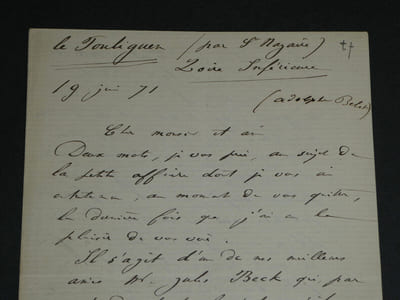 le Pouliguen (par St Nazaire)
Loire Inférieure
19 juin 71
(Adolphe Belot)
Cher monsieur et ami
Deux mots, je vous prie, au sujet de
la petite affaire dont je vous ai
entretenu, au moment de vous quitter,
la dernière fois que j'ai eu le
plaisir de vous voir.
Il s'agit d'un de nos meilleurs
amis Mr. Jules Beck qui par